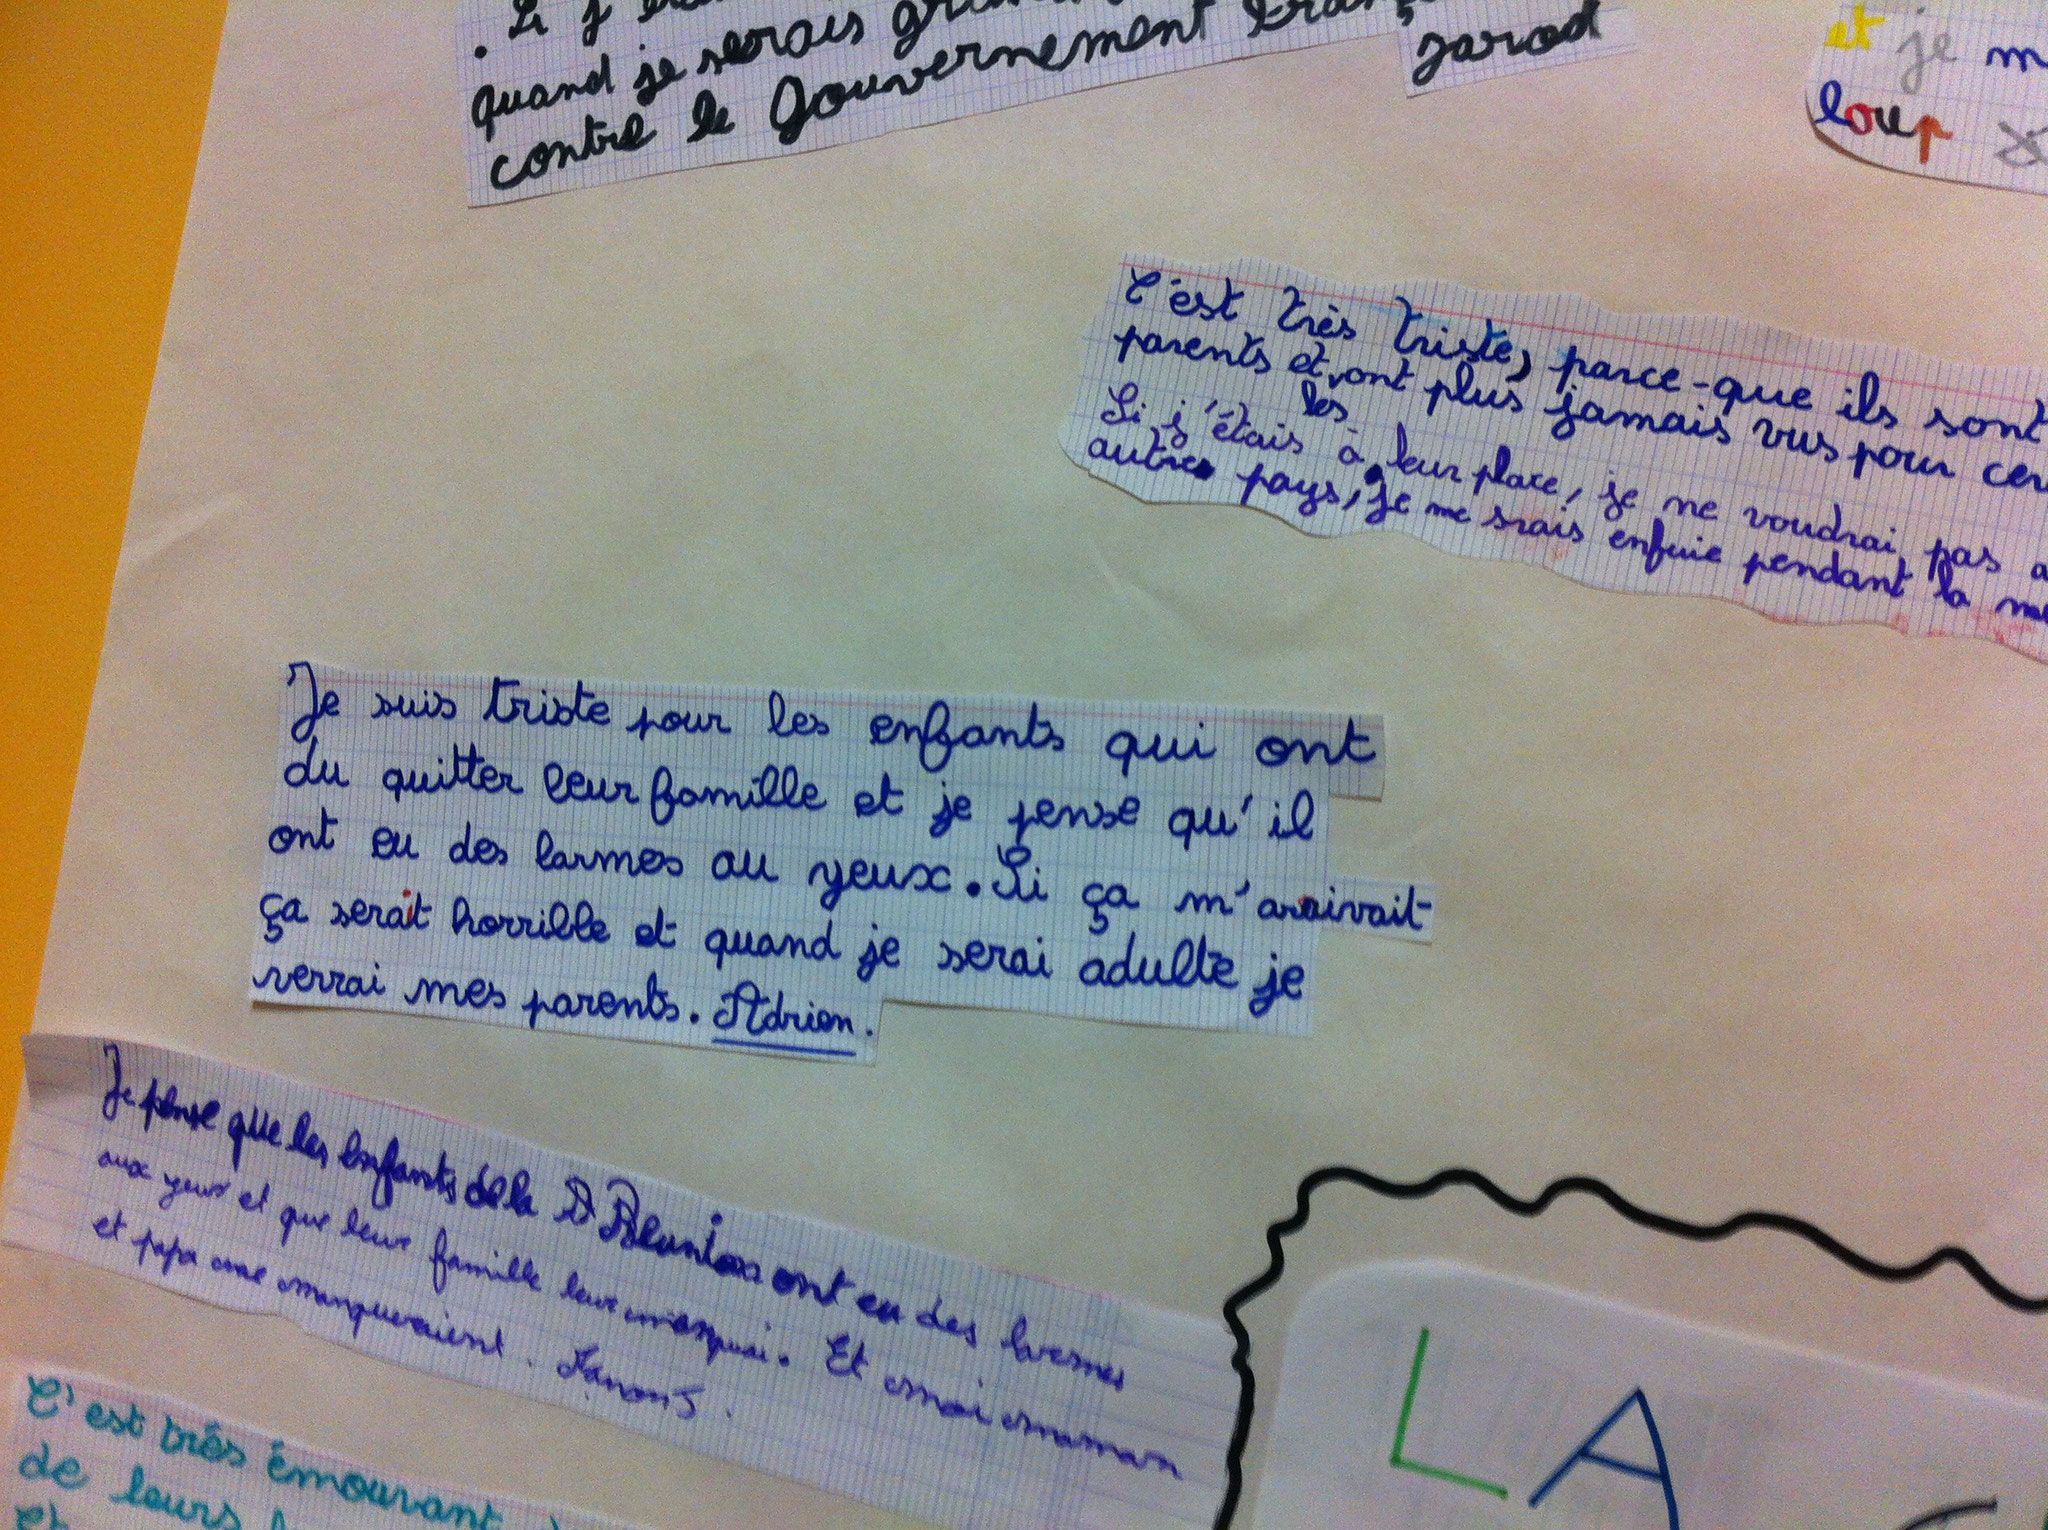 . Si j'
quand je serais
contre le gouvernement
jarod
et je m
loup
C'est très triste, parce-que ils sont
parents et ont plus jamais vus pour cer
les
Si j'étais à leur place, je ne voudrai pas a
autre pays, je me srais enfuie pendant la
Je suis triste pour les enfants qui ont
du quitter leur famille et je pense qu'il
ont eu des larmes au yeux. Si ça m'araivait
ça serait horrible et quand je serai adulte je
verrai mes parents. Adrien.
Je pense que les enfants de la Réunion ont eu des larmes
aux yeux et que leur famille leur manquai. Et moi maman
et papa me manqueraient.
C'est très émouvant
de leurs
Et
LA